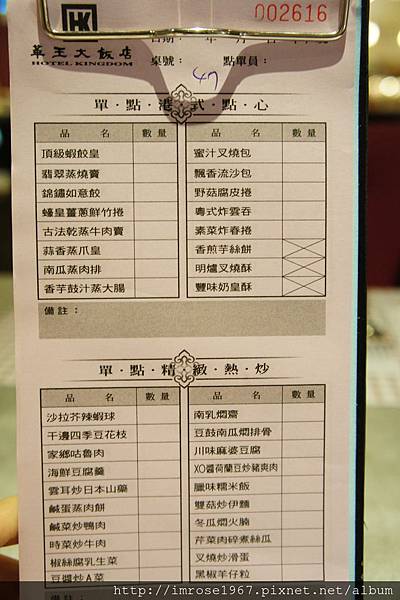 HK
002616
華王大飯店
HOTEL KINGDOM
年 月
桌號： 47 點單員：
單·點·港·式·點·心
品 名 數量 品 名 數量
頂級蝦餃皇 蜜汁叉燒包
翡翠蒸燒賣 飄香流沙包
錦鏽如意餃 野菇腐皮捲
蠔皇薑蔥鮮竹捲 粵式炸雲吞
古法乾蒸牛肉賣 素菜炸春捲
蒜香蒸爪皇 香煎芋絲餅
南瓜蒸肉排 明爐叉燒酥
香芋鼓汁蒸大腸 豐味奶皇酥
備註：
單·點·精·緻·熱·炒
品 名 數量 品 名 數量
沙拉芥辣蝦球 南乳燜齋
干邊四季豆花枝 豆鼓南瓜燜排骨
家鄉咕魯肉 川味麻婆豆腐
海鮮豆腐羹 XO醬荷蘭豆炒豬爽肉
雲耳炒日本山藥 臘味糯米飯
鹹蛋蒸肉餅 雙菇炒伊麵
鹹菜炒鴨肉 冬瓜燜火腩
時菜炒牛肉 芹菜肉碎煮絲瓜
椒絲腐乳生菜 叉燒炒滑蛋
豆醬炒A菜 黑椒羊仔粒
備註：
http://imrose1967.pixnet.net/album